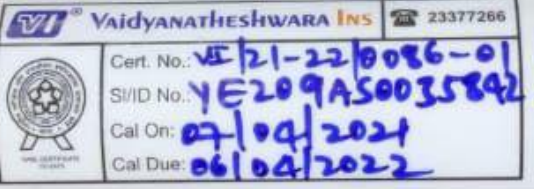 VI® VAIDYANATHESHWARA INS ☎ 23377266
Cert. No.: VI/21-22/0086-01
SI/ID No.: YE209AS0035842
Cal On: 07/04/2021
Cal Due: 06/04/2022